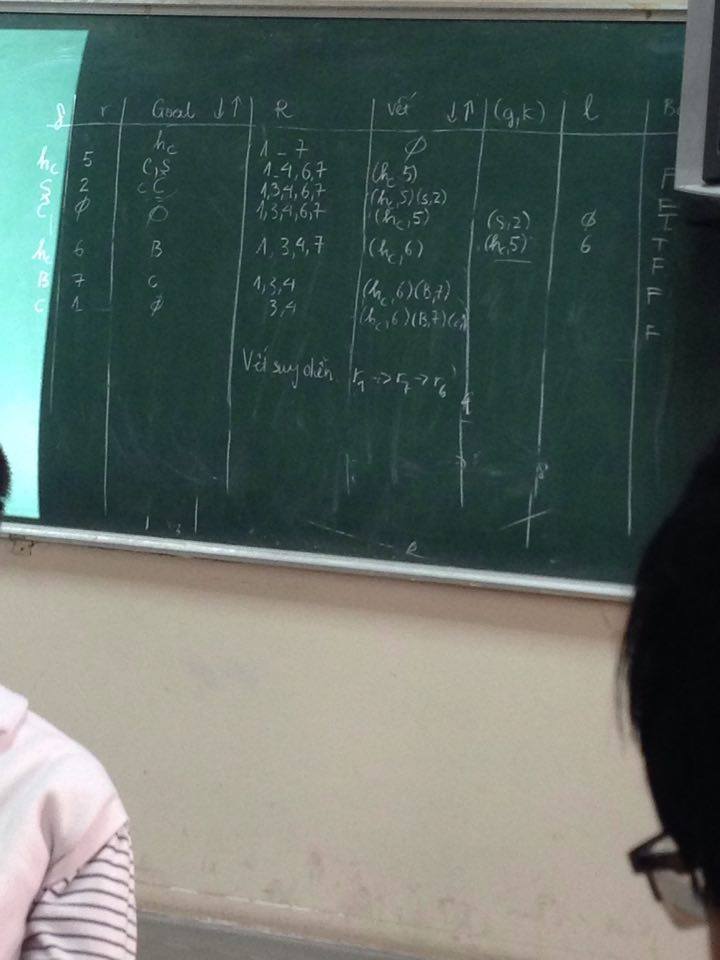 g r Goal ↓↑ R Vết ↓↑ (g,k) l B
h_c 1 - 7 ∅
h_c 5 C,S 1-4,6,7 (h_c,5) F
S 2 C 1,3,4,6,7 (h_c,5)(s,2) F
C ∅ 1,3,4,6,7 (h_c,5) (s,2) ∅
(h_c,5) 6 T
h_c 6 B 1,3,4,7 (h_c,6) F
B 7 C 1,3,4 (h_c,6)(B,7) F
C 1 ∅ 3,4 (h_c,6)(B,7)(c,1) F
Vết suy diễn r_1 -> r_7 -> r_6